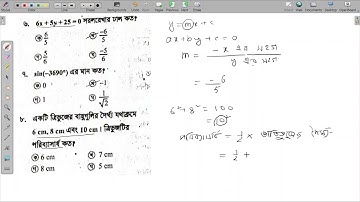 ৬. 6x + 5y + 25 = 0 সরলরেখার ঢাল কত?
6/5 -6/5
5/6 -5/6
৭. sin(−3690°) এর মান কত?
0 −1
1 1/√2
৮. একটি ত্রিভুজের বাহুগুলির দৈর্ঘ্য যথাক্রমে
6 cm, 8 cm এবং 10 cm । ত্রিভুজটির
পরিব্যাসার্ধ কত?
6 cm 7 cm
8 cm 5 cm
y = mx + c
ax + by + c = 0
m = -x এর সহগ / y এর সহগ
= -6/5
6² + 8² = 100
= 10²
পরিব্যাসার্ধ = 1/2 × অতিভুজের দৈর্ঘ্য
= 1/2 +